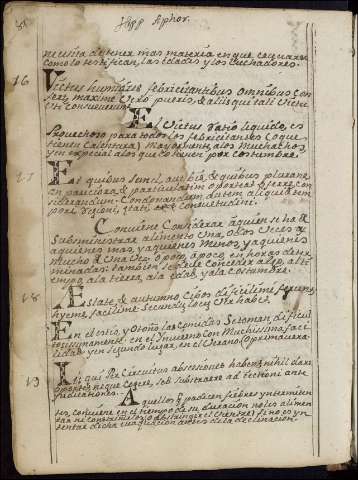 Hipp Aphor.
necesita detener mas materia en que ceguarse
como lo testifican, las edades y los luchadores.
16 Victus humidus febricitantibus omnibus con
fert, maxime vero pueris, & aliis qui tali victu
uti consueverunt.
El Victus ratio liquido, es
Provechoso para todos los febricitantes (o que
tienen Calentura) mayormente, a los muchachos,
y en especial a los que lo tienen por costumbre.
17 Et quibus semel, aut bis, & quibus plura, ne
an pauciora, & particulatim oporteat oferre con
siderandum. Condonandum autem aliquid tem
pori, regioni, etati, & consuetudini.
Conviene Considerar a quien se ha de
Subministrar alimento una, o dos veces, a
quienes mas, y a quienes menos, y a quienes
mucho de una vez, o poco a poco, en horas deter
minadas: tambien se debe Conceder algo, al ti
empo, a la tierra, a la edad, y a la costumbre.
18 Aestate & autumno, Cibos dificilime ferunt,
hyeme, facilime Secundo loco Vere habet.
En el estio, y Otoño las Comidas Se toman dificul
tosisimamente: en el Invierno con Muchissima faci
lidad, y en segundo lugar, en el Verano (o primavera
19 Iis qui Per Circuitus abscesiones habent, nihil dare
oportet, neque cogere, sed subtraere ad iectioni ante
judicationes.
Aquellos q padecen fiebres yntermiten
tes, conviene en el tiempo de su duracion no les alimen
tar ni constreñirlos
dentar dicha evaquacion antes de la declinacion